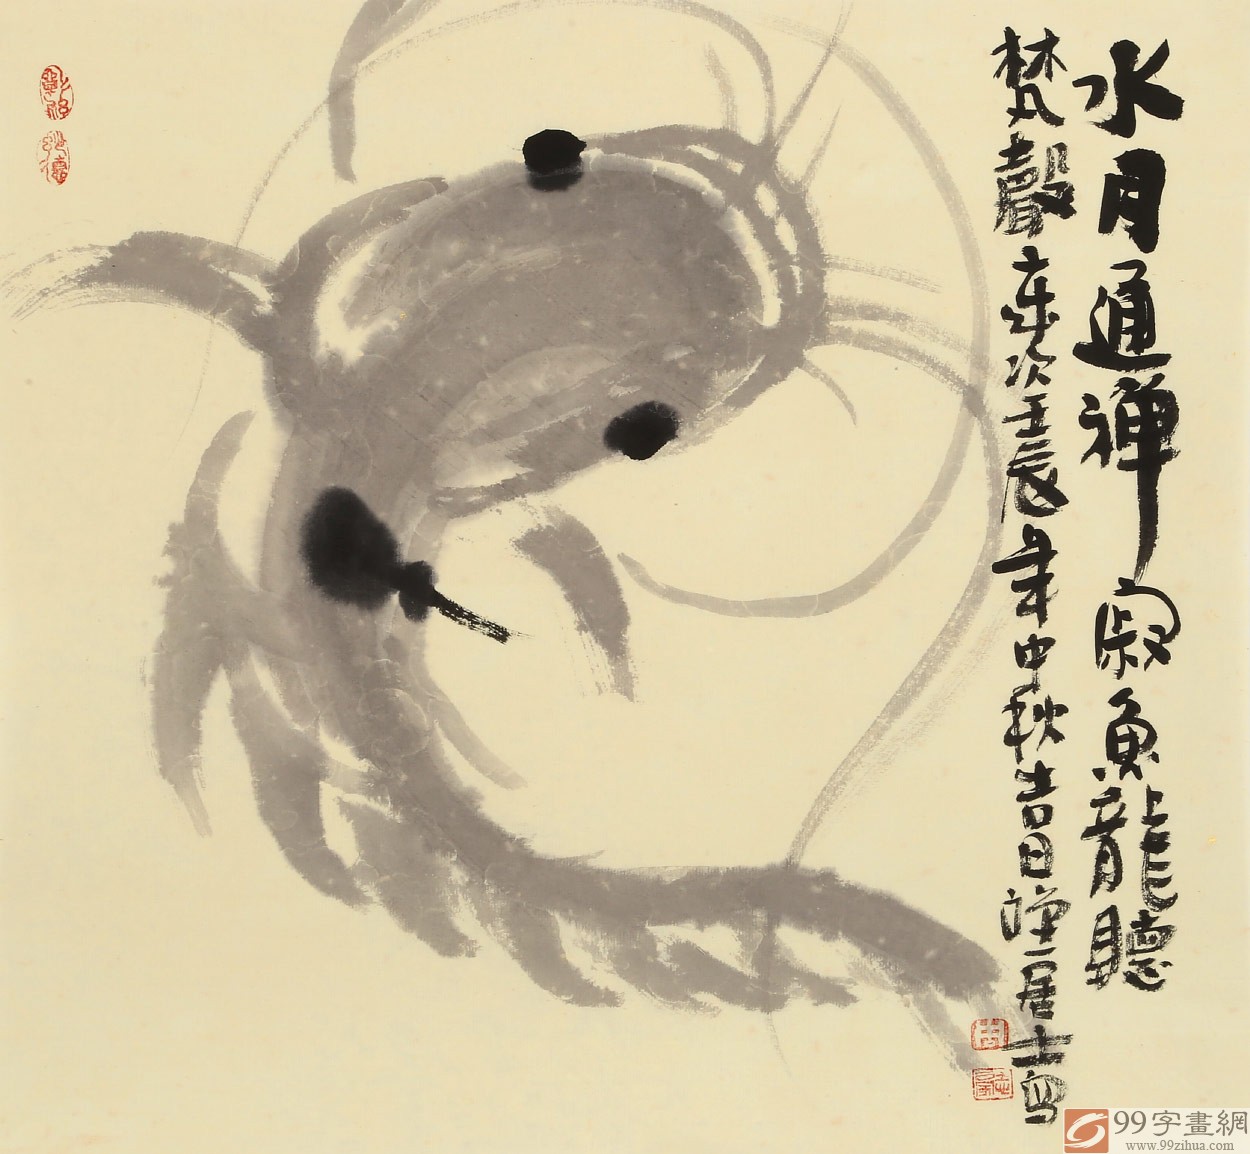 水月通禅寂魚龍聽
梵聲 歲次壬辰年中秋吉日禅一居士寫
99字畫網
www.99zihua.com